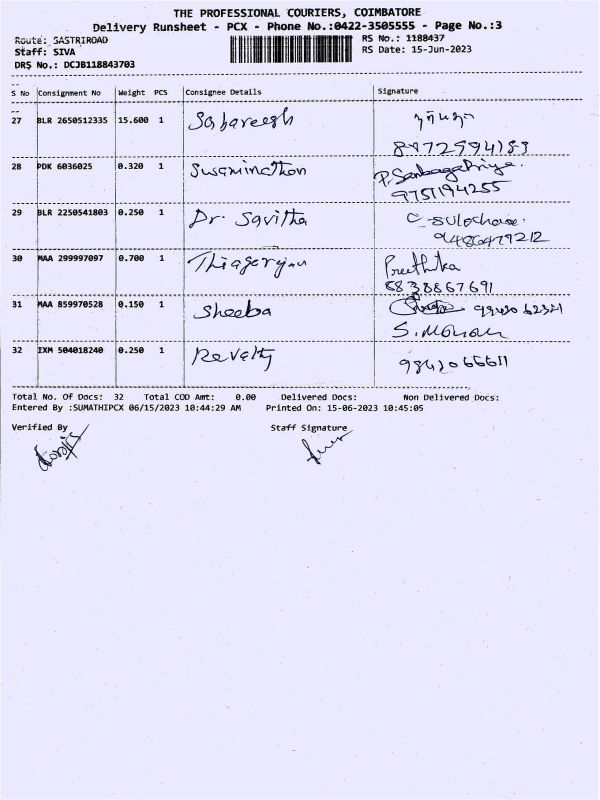 THE PROFESSIONAL COURIERS, COIMBATORE
Delivery Runsheet - PCX - Phone No.:0422-3505555 - Page No.:3
Route: SASTRIROAD
RS No.: 1188437
Staff: SIVA
RS Date: 15-Jun-2023
DRS No.: DCJB118843703
S No Consignment No Weight PCS Consignee Details Signature
27 BLR 2650512335 15.600 1 Sabareesh
28 PDK 6036025 0.320 1 Swaminathan P. Sanbagapriya.
9751194255
29 BLR 2250541803 0.250 1 Dr. Savitha C-Sulochana.
9486479212
30 MAA 299997097 0.700 1 Thiagarajan Preethika
8838867691
31 MAA 859970528 0.150 1 Sheeba
S. Mohan
32 IXM 504018240 0.250 1 Revathy
Total No. Of Docs: 32 Total COD Amt: 0.00 Delivered Docs: Non Delivered Docs:
Entered By :SUMATHIPCX 06/15/2023 10:44:29 AM Printed On: 15-06-2023 10:45:05
Verified By Staff Signature